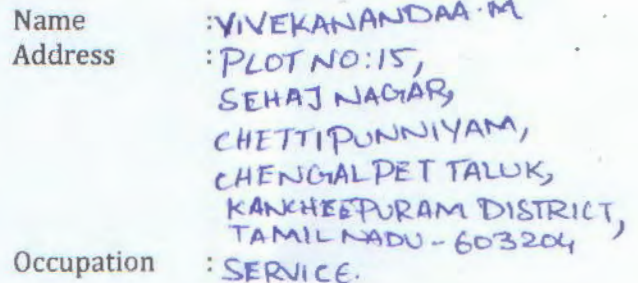 Name :VIVEKANANDAA.M
Address :PLOT NO:15,
SEHAJ NAGAR,
CHETTIPUNNIYAM,
CHENGALPET TALUK,
KANCHEEPURAM DISTRICT,
TAMIL NADU - 603204
Occupation : SERVICE.